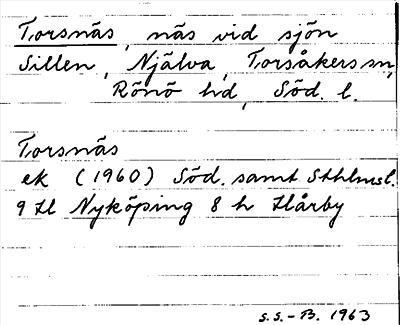 Torsnäs, näs vid sjön
Sillen, Njälva, Torsåkers sn,
Rönö hd, Söd. l.
Torsnäs
ek (1960) Söd. samt Sthlmsl.
9 H Nyköping 8 h Hårby
S.S.-B. 1963